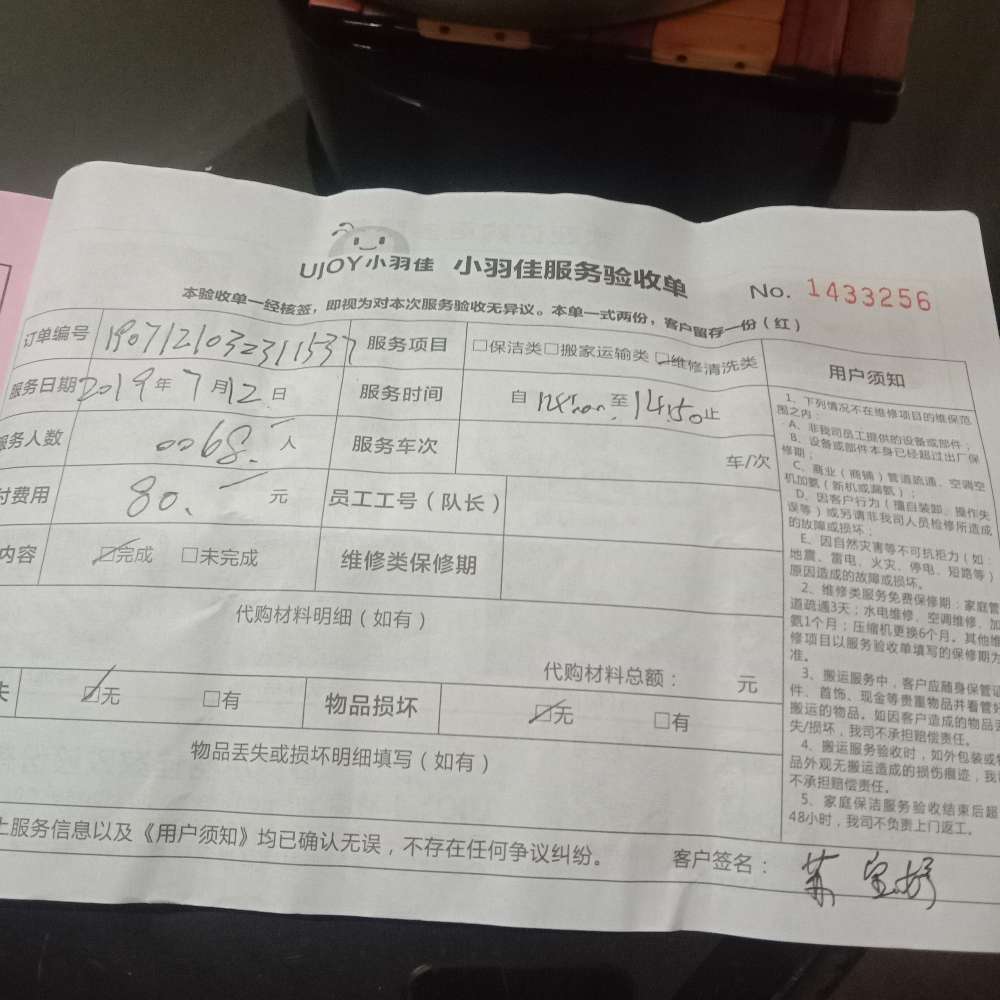 UJOY小羽佳 小羽佳服务验收单 No. 1433256
本验收单一经核签，即视为对本次服务验收无异议。本单一式两份，客户留存一份（红）
订单编号 服务项目 □保洁类□搬家运输类☑维修清洗类
服务日期 2019年7月12日 服务时间 自 至14:50止
服务人数 0068 人 服务车次 车/次
付费用 80. 元 员工工号（队长）
内容 ☑完成 □未完成 维修类保修期
代购材料明细（如有）
代购材料总额： 元
失 ☑无 □有 物品损坏 ☑无 □有
物品丢失或损坏明细填写（如有）
上服务信息以及《用户须知》均已确认无误，不存在任何争议纠纷。 客户签名：
用户须知
1、下列情况不在维修项目的维保范
围之内：
A、非我司员工提供的设备或部件；
B、设备或部件本身已经超过出厂保
修期；
C、商业（商铺）管道疏通、空调空
机加氨（新机或漏氨）；
D、因客户行为（擅自装卸、操作失
误等）或另请非我司人员检修所造成
的故障或损坏；
E、因自然灾害等不可抗拒力（如：
地震、雷电、火灾、停电、短路等）
原因造成的故障或损坏。
2、维修类服务免费保修期：家庭管
道疏通3天；水电维修、空调维修、加
氨1个月；压缩机更换6个月。其他维
修项目以服务验收单填写的保修期为
准。
3、搬运服务中，客户应随身保管证
件、首饰、现金等贵重物品并看管好
搬运的物品。如因客户造成的物品丢
失/损坏，我司不承担赔偿责任。
4、搬运服务验收时，如外包装或物
品外观无搬运造成的损伤痕迹，我司
不承担赔偿责任。
5、家庭保洁服务验收结束后超
48小时，我司不负责上门返工。